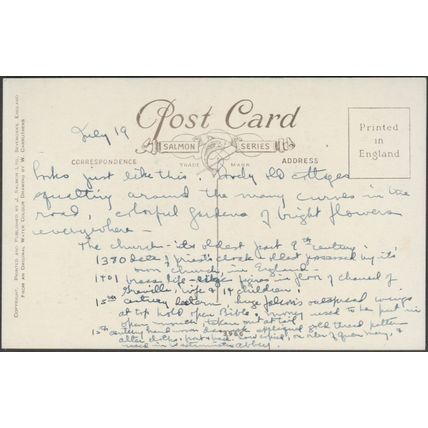 Post Card
SALMON SERIES
TRADE MARK
CORRESPONDENCE
ADDRESS
Printed
in
England
COPYRIGHT. PRINTED AND PUBLISHED BY J. SALMON LTD., SEVENOAKS, ENGLAND
FROM AN ORIGINAL WATER COLOUR DRAWING BY W. CARRUTHERS
July 19
Looks just like this. Lovely old cottages
squatting around the many curves in the
road, colorful gardens of bright flowers
everywhere -
The church - its oldest part 9th century.
1370 date of priest's cloak - oldest possessed by its
own church in England.
1401 brass life-size figures in floor of chancel of
Greville, wife & 14 children.
15th century lectern, huge falcon's outspread wings
at top hold open Bible, money used to be put in
open mouth, taken out at tail
15th century hand woven damask, appliqued gold thread pattern
altar cloths, copied, on order of queen mary, &
used in Westminster abbey.